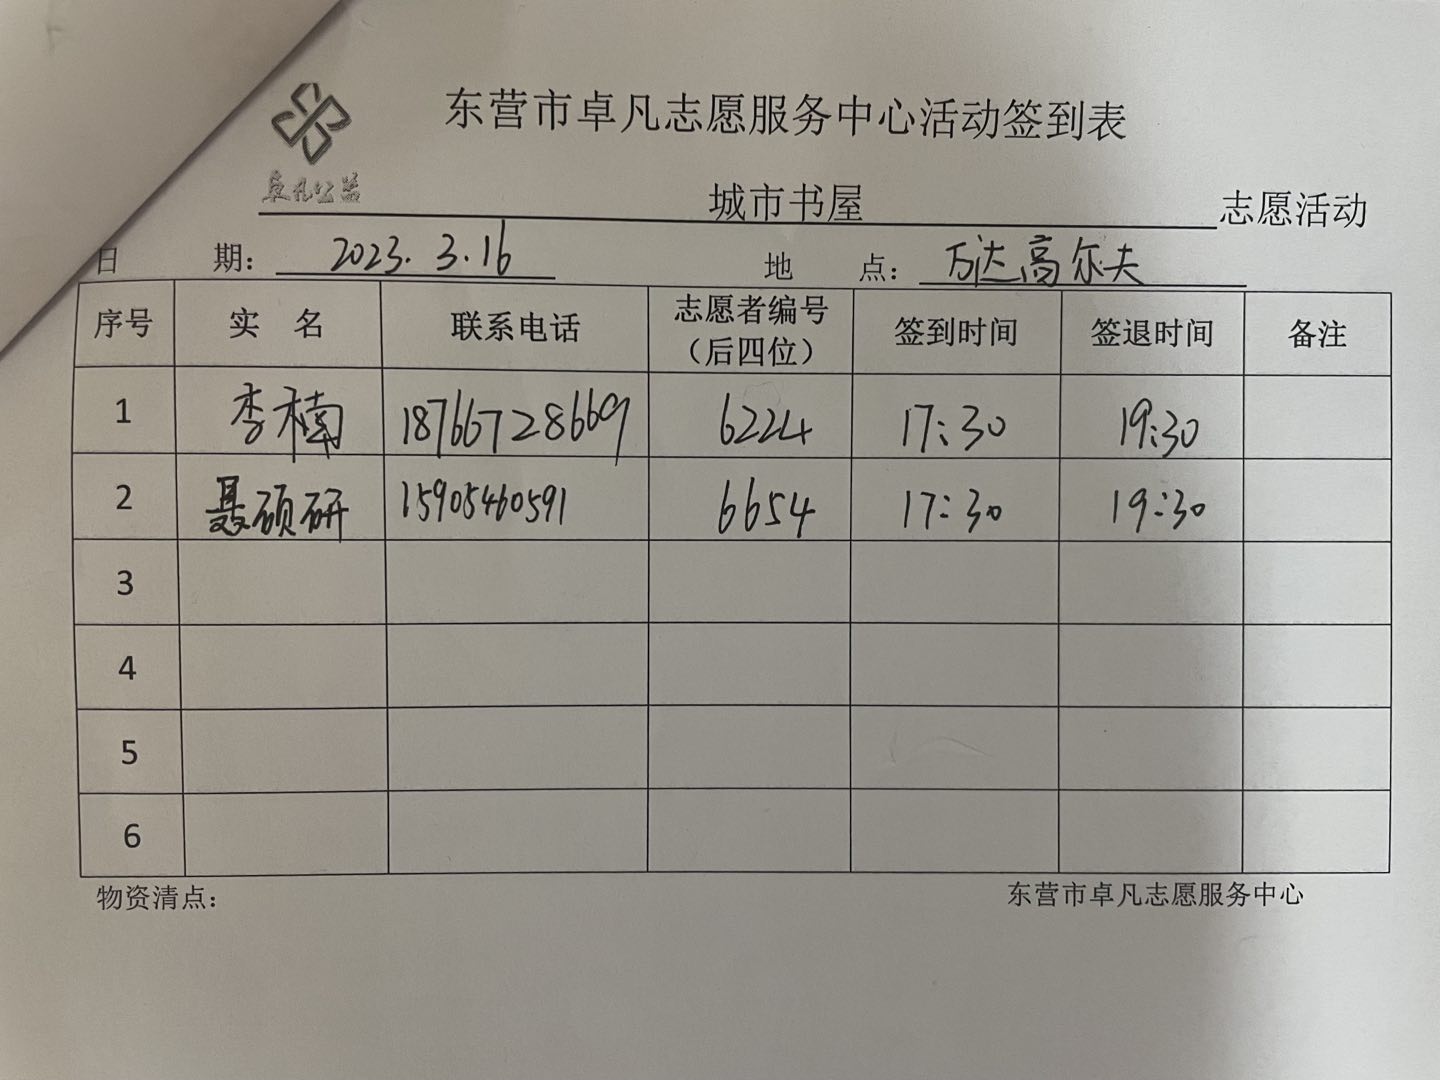 东营市卓凡志愿服务中心活动签到表
卓凡公益
城市书屋 志愿活动
日 期: 2023.3.16 地 点: 万达高尔夫
序号 实 名 联系电话 志愿者编号(后四位) 签到时间 签退时间 备注
1 李楠 18766728669 6224 17:30 19:30
2 聂硕研 15905460591 6654 17:30 19:30
3
4
5
6
物资清点: 东营市卓凡志愿服务中心